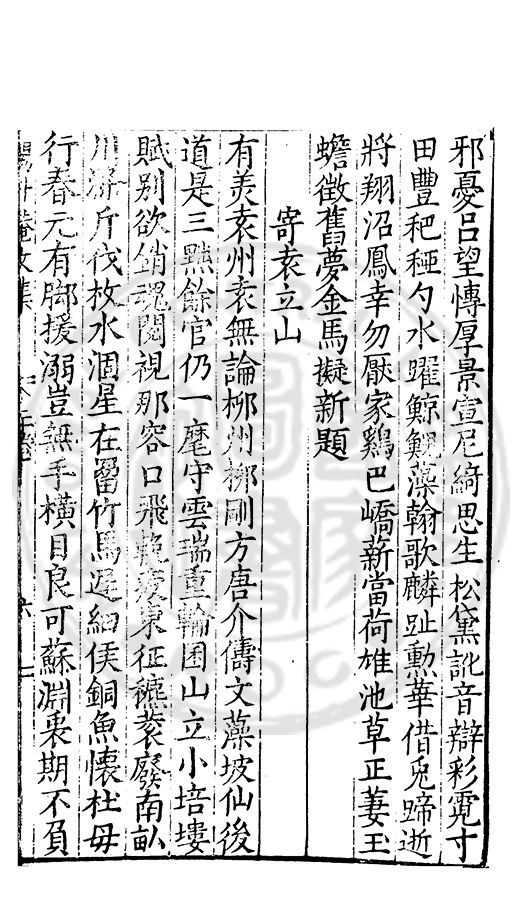 邪憂呂望慱厚景宣尼綺思生松黛訛音辯彩霓寸
田豐秬秠勺水躍鯨鯢藻翰歌麟趾勲華借兎蹄逝
將翔沼鳳幸勿厭家鷄巴嶠薪當荷雄池草正萋玉
蟾徵舊夢金馬擬新題
寄袁立山
有美袁州袁無論柳州柳剛方唐介儔文藻坡仙後
道是三黜餘官仍一麾守雲瑞重輪囷山立小培塿
賦别欲銷魂閱視那容口飛輓疲東征穮蓘廢南畝
川澤斤伐枚水涸星在罶竹馬遲細侯銅魚懷杜母
行春元有脚援溺豈無手横目良可蘇淵衷期不負
升菴文集
六